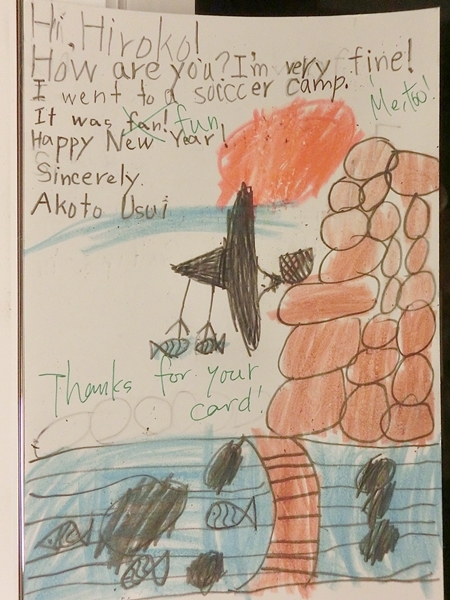 Hi, Hiroko!
How are you? I'm very fine!
I went to a socccer camp.
Me, too!
It was fan! fun
Happy New Year!
Sincerely.
Akoto Usui
Thanks for your
card!